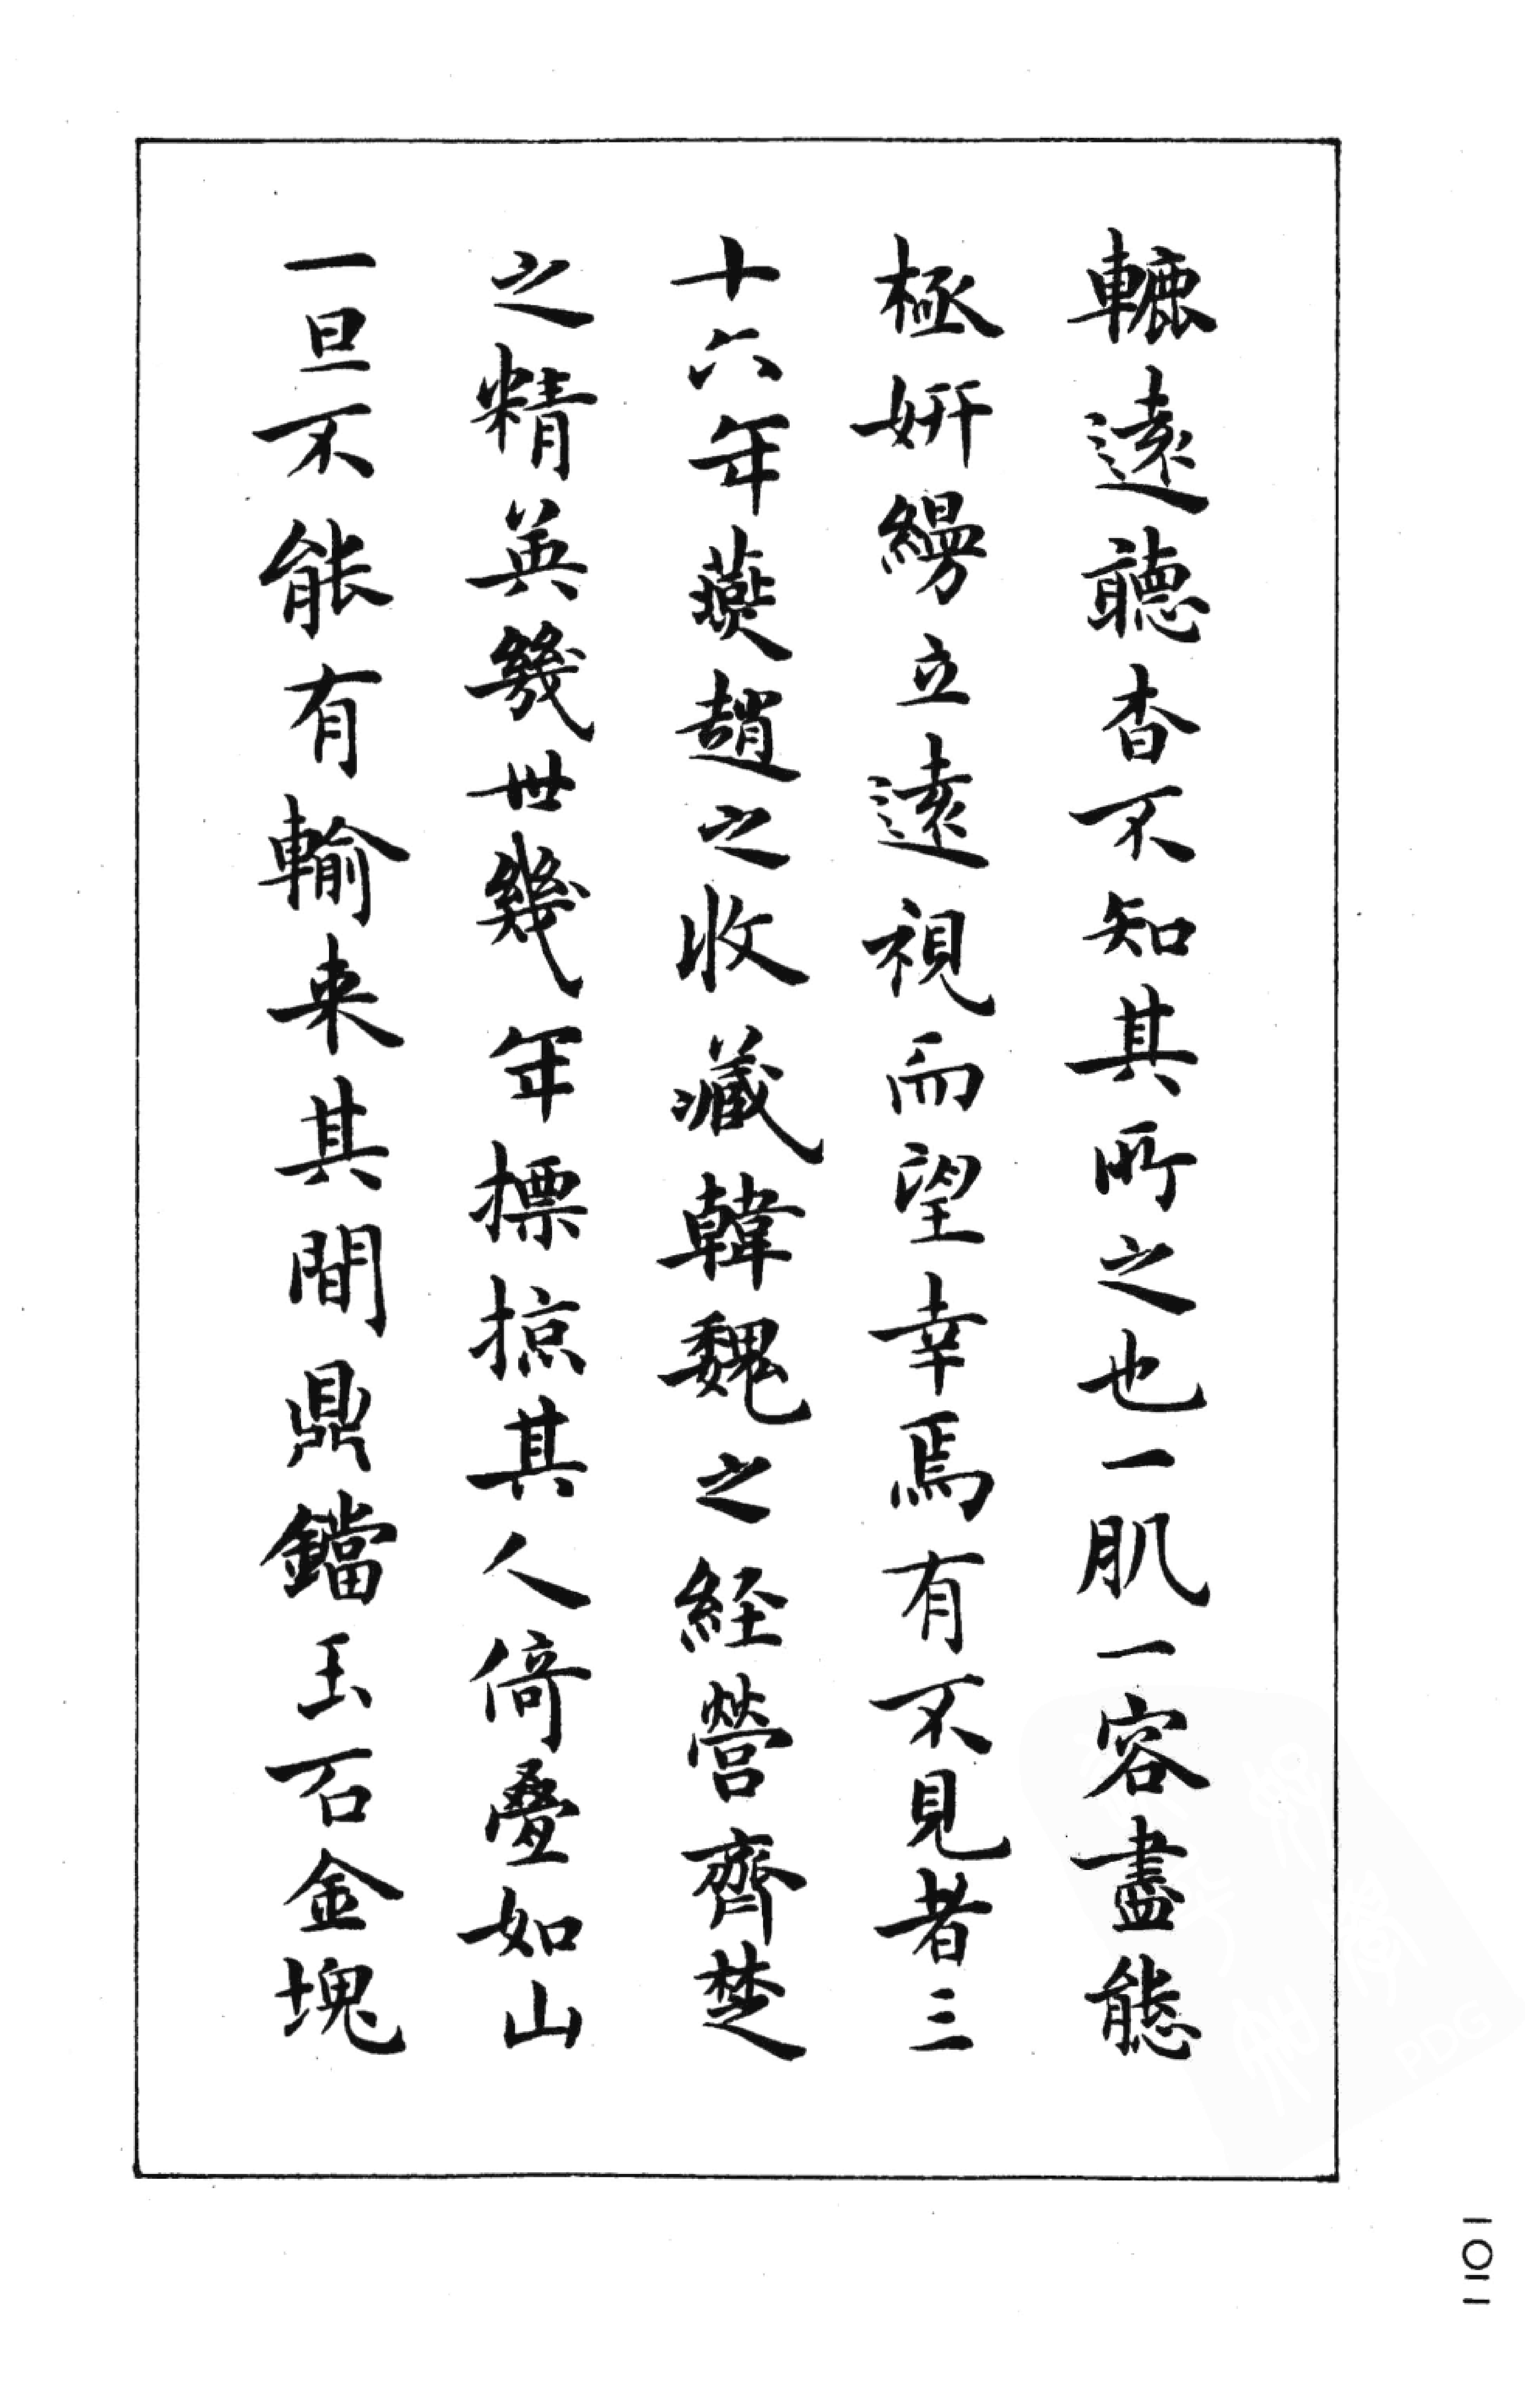 轆遠聽杳不知其所之也一肌一容盡態
極妍縵立遠視而望幸焉有不見者三
十六年燕趙之收藏韓魏之経營齊楚
之精英幾世幾年摽掠其人倚疊如山
一旦不能有輸来其間鼎鐺玉石金塊
一〇一